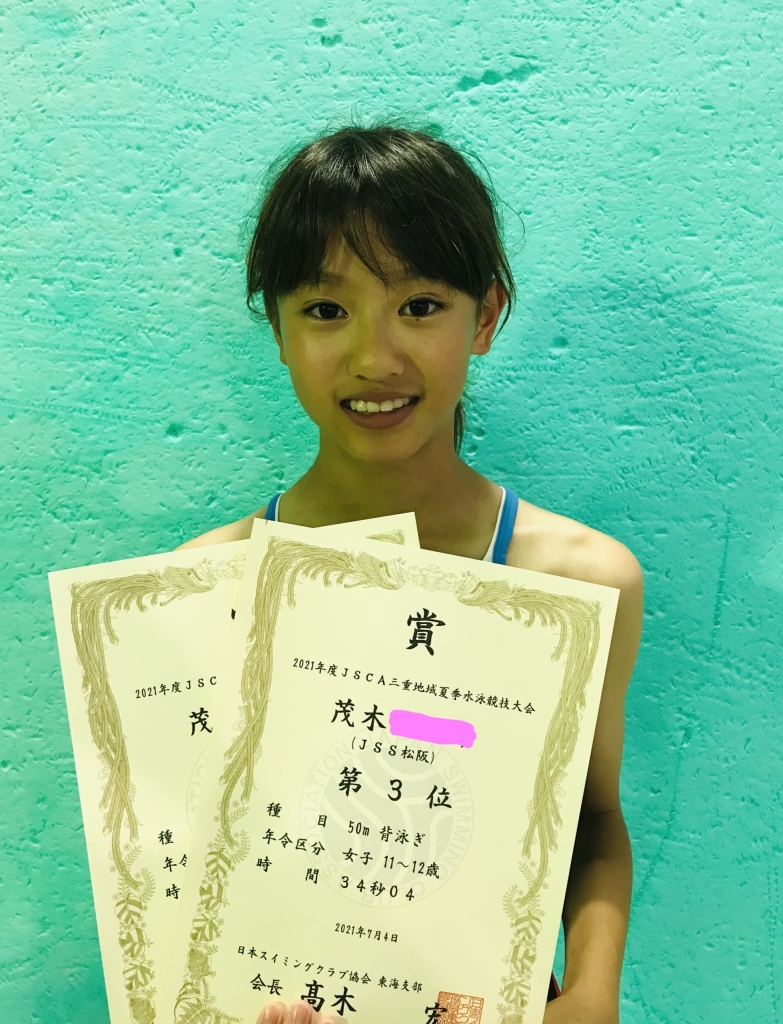 賞
2021年度JSCA三重地域夏季水泳競技大会
茂木
(JSS松阪)
第3位
種目 50m 背泳ぎ
年令区分 女子 11〜12歳
時間 34秒04
2021年7月4日
日本スイミングクラブ協会 東海支部
会長 髙木 宏
2021年度JSC
茂
種
年令
時